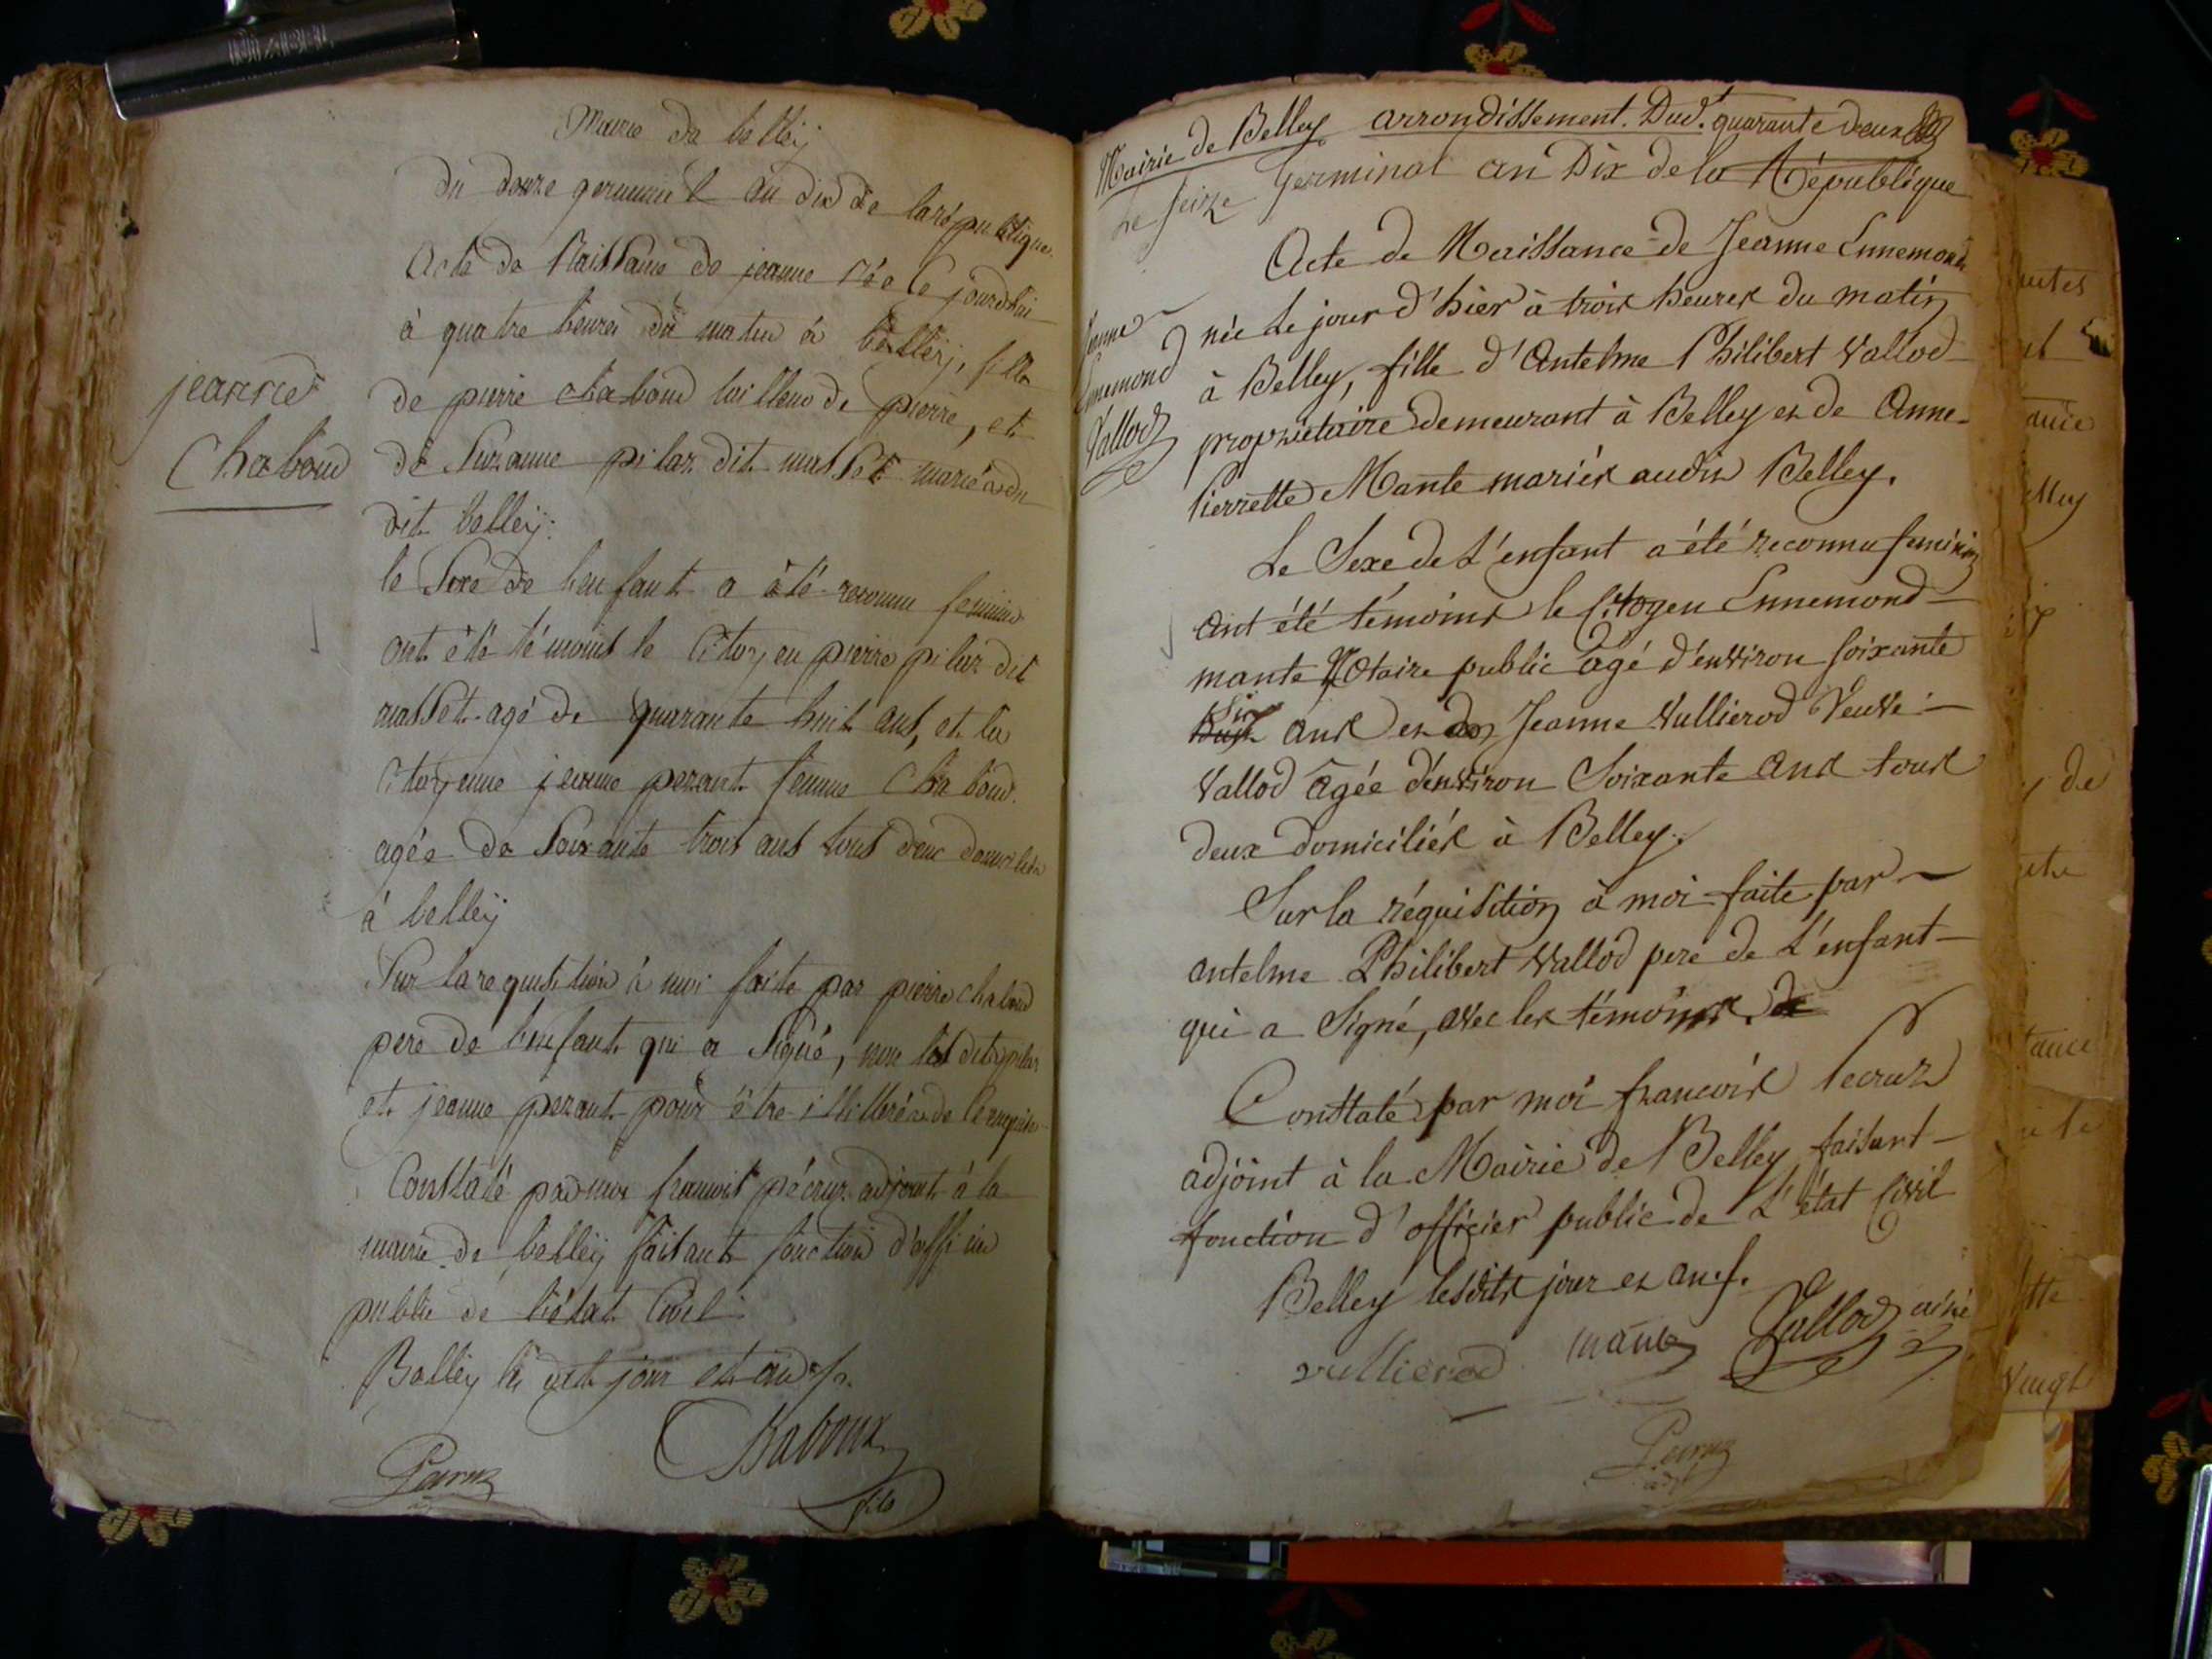 Mairie de belleÿ
du douze germinal an dix de la république
Acte de Naissance de jeanne née ce jourdhui
à quatre heures du matin à belleÿ, fille
de pierre chaboud tailleur de pierre, et
de Suzanne pilaz dit masset mariés du
dit belleÿ:
jeanne
Chaboud
le Sexe de l'enfant a été reconnu feminin
ont été témoins le Citoyen pierre pilaz dit
masset agé de quarante huit ans, et la
Citoyenne jeanne perant femme Chaboud
agée de Soixante trois ans tous deux domiciliés
à belleÿ
Sur la requisition à moi faite par pierre chaboud
pere de l'enfant qui a Signé, non les dits pilaz
et jeanne perant pour être illitterés de ce enquis
Constaté par moi francois pécruz adjoint à la
mairie de belleÿ faisant fonction d'officier
public de l'état Civil
Belleÿ les dits jour et an
Chaboux
fils
Pecruz
Mairie de Belley arrondissement. Dud.t quarante deux
Le seize Germinal an Dix de la République
Acte de Naissance de Jeanne Ennemonde
née le jour d'hier à trois heures du matin
à Belley, fille d'Antelme Philibert Vallod
propriétaire demeurant à Belley et de Anne
Pierrette Mante mariés audit Belley.
Jeanne
Ennemond
Vallod
Le Sexe de L'enfant a été reconnu feminin
ont été témoins le Citoyen Ennemond
mante Notaire public âgé d'environ soixante
Six ans et Jeanne Vullierod Veuve
Vallod âgée d'environ Soixante ans tous
deux domiciliés à Belley.
Sur la réquisition à moi faite par
antelme Philibert Vallod pere de L'enfant
qui a Signé, avec les témoins
Constaté par moi francois Pecruz
adjoint à la Mairie de Belley faisant
fonction d'officier public de L'état Civil
Belley lesdits jour et an.
vullierod mante Vallod ainé
Pecruz
adjt